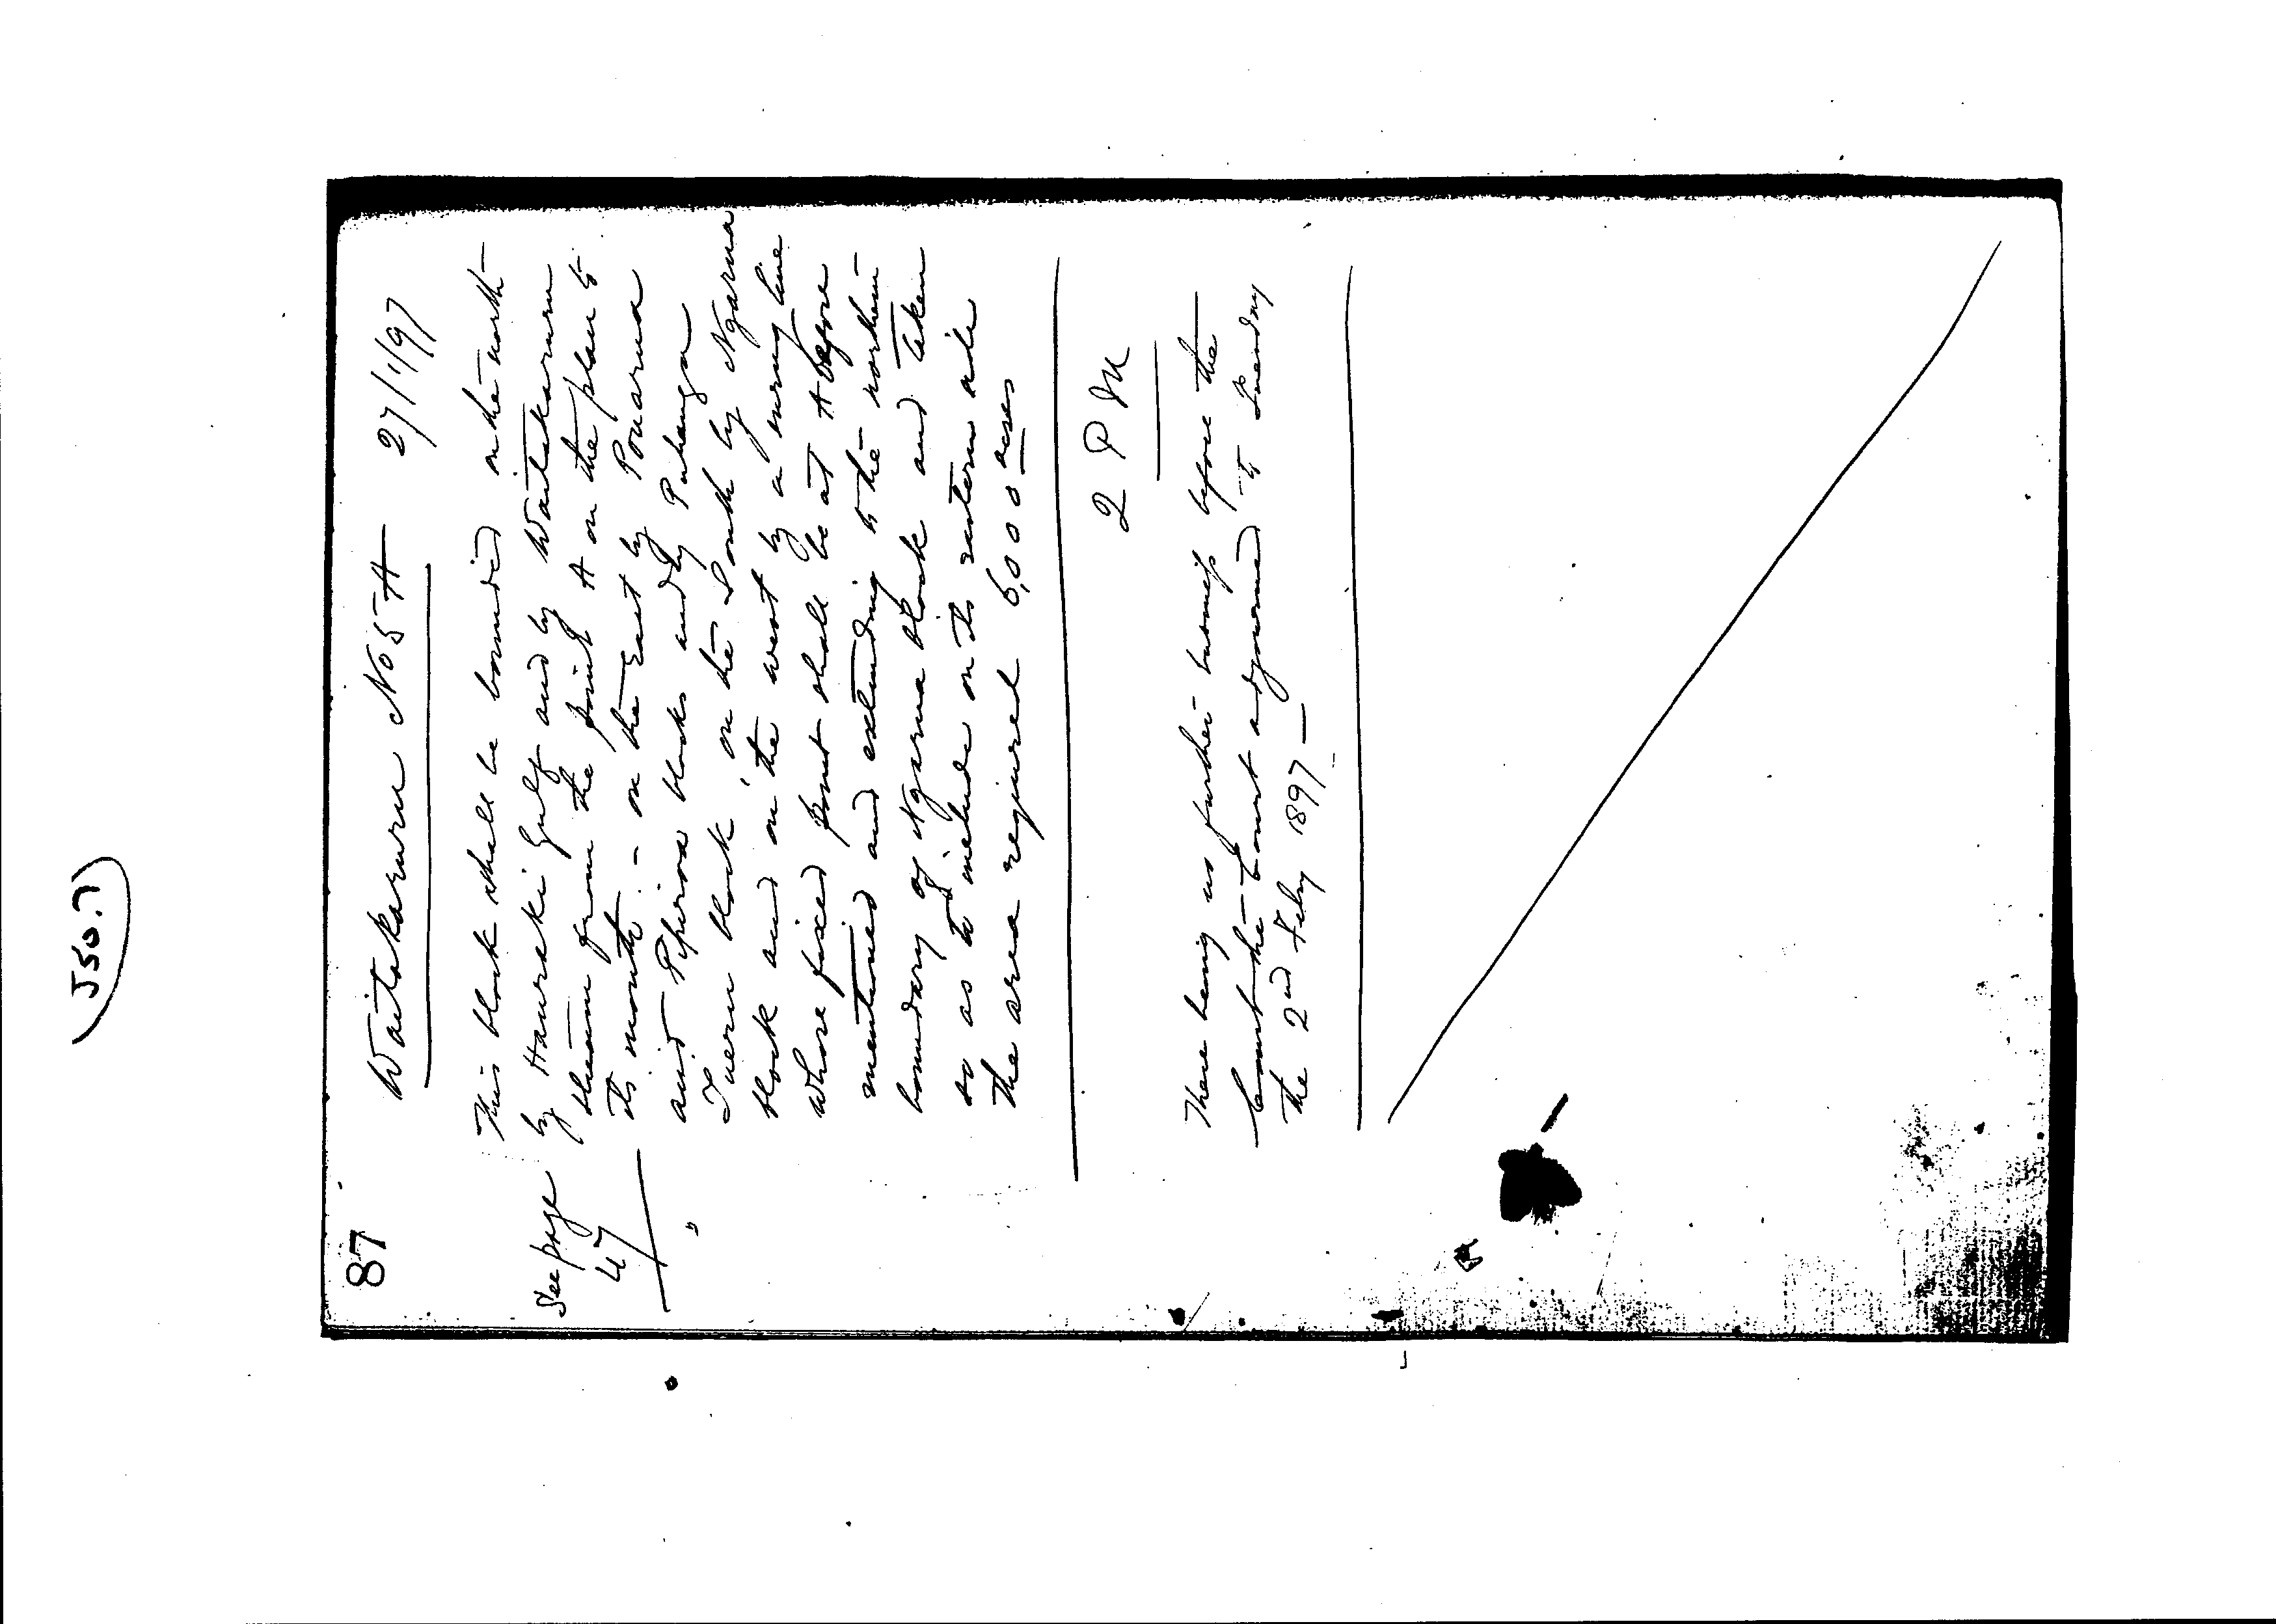 (J50.7)
87
Waitakaruru No 5A 27/1/97
This block shall be bounded on the north
by Hauraki Gulf and by Waitakaruru
stream from the point A on the plan to
its mouth - on the East by Pouarua
and Pipiroa blocks and by Puhanga
Tuern block, on the South by Ngarua
block and on the west by a line
whose fixed point shall be at A before
mentioned and extending to the northern
boundary of Ngarua block and taken
so as to include on its eastern side
the area required 6,000 acres
See page
47
2 PM
There being no further business before the
Court the Court adjourned to Tuesday
the 2nd Feby 1897 —